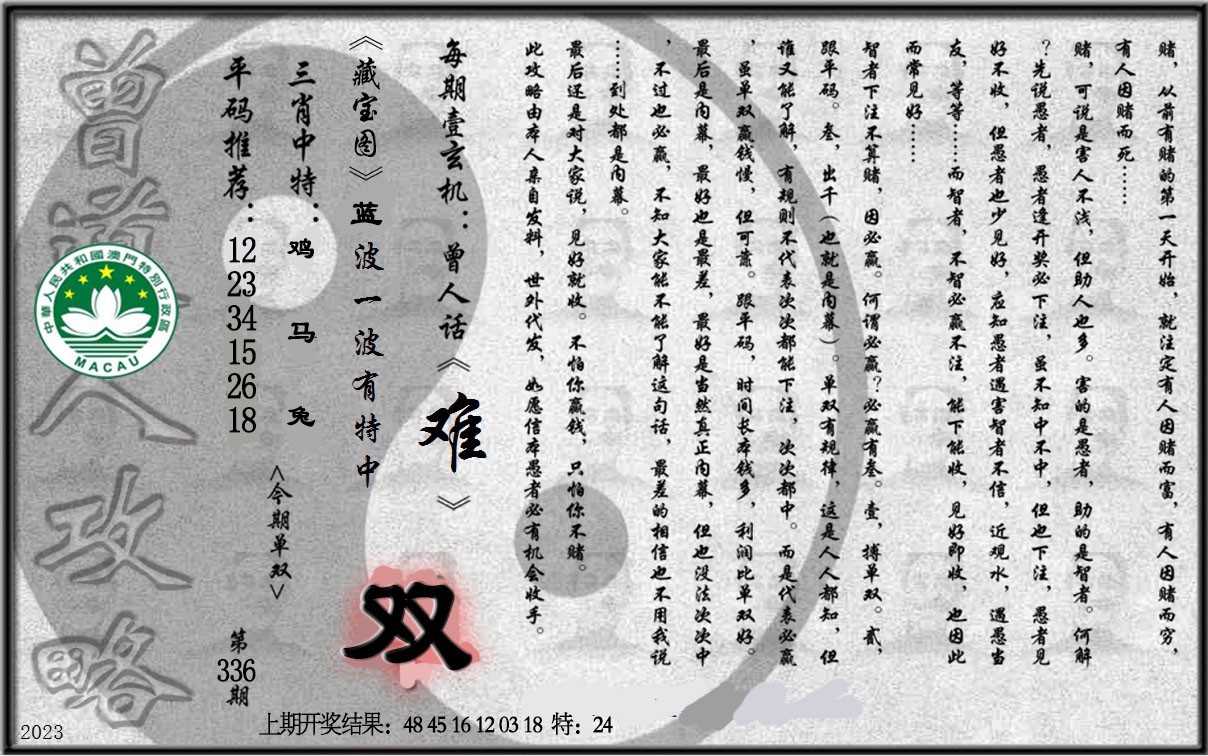 赌，从前有赌的第一天开始，就注定有人因赌而富，有人因赌而穷，
有人因赌而死……
赌，可说是害人不浅，但助人也多。害的是愚者，助的是智者。何解
？先说愚者，愚者逢开奖必下注，虽不知中不中，但也下注，愚者见
好不收，但愚者也少见好，应知愚者遇害智者不信，近观水，遇愚当
友，等等……而智者，不智必赢不注，能下能收，见好即收，也因此
而常见好……
智者下注不算赌，因必赢。何谓必赢？必赢有叁。壹，搏单双。贰，
跟平码。叁，出千（也就是内幕）。单双有规律，这是人人都知，但
谁又能了解，有规则不代表次次都能下注，次次都中。而是代表必赢
，虽单双赢钱慢，但可靠。跟平码，时间长本钱多，利润比单双好。
最后是内幕，最好也是最差，最好是当然真正内幕，但也没法次次中
，不过也必赢，不知大家能不能了解这句话，最差的相信也不用我说
……到处都是内幕。
最后还是对大家说，见好就收。不怕你赢钱，只怕你不赌。
此攻略由本人亲自发料，世外代发，如愿信本愚者必有机会收手。
每期壹玄机：曾人话《难》
《藏宝图》蓝波一波有特中
双
三肖中特：鸡 马 兔
<今期单双>
平码推荐：12 23 34 15 26 18
第336期
曾道人攻略
中華人民共和國澳門特別行政區
MACAU
上期开奖结果：48 45 16 12 03 18 特：24
2023